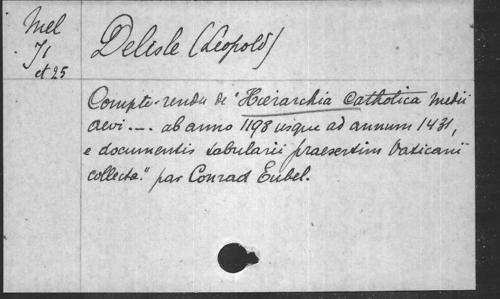 Mel
J1
et 25
Delisle (Léopold)
Compte-rendu de "Hierarchia Catholica medii
aevi.-. ab anno 1198 usque ad annum 1431,
e documentis tabularii praesertim Vaticani
collecta." par Conrad Eubel.